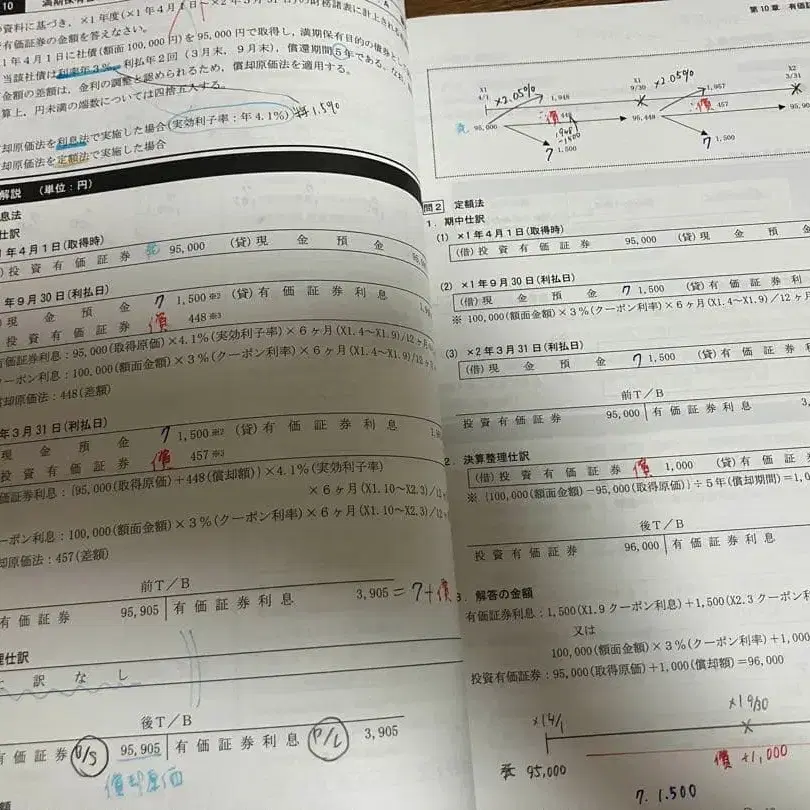 10
の資料に基づき、×1年度(×1年4月1日～×2年3月31日)の財務諸表に計上される
有価証券の金額を答えなさい。
1年4月1日に社債(額面100,000円)を95,000円で取得し、満期保有目的の債券として
当該社債は利率年3%、利払年2回(3月末、9月末)、償還期間5年である。なお、
金額の差額は、金利の調整と認められるため、償却原価法を適用する。
算上、円未満の端数については四捨五入する。
却原価法を利息法で実施した場合(実効利子率：年4.1%)
却原価法を定額法で実施した場合
解説 (単位：円)
息法
仕訳
1年4月1日(取得時)
投資有価証券 95,000 (貸) 現金預金
年9月30日(利払日)
現金預金 ク 1,500※2 (貸) 有価証券利息
投資有価証券 償 448※3
有価証券利息：95,000(取得原価)×4.1%(実効利子率)×6ヶ月(X1.4～X1.9)/12ヶ月
ーポン利息：100,000(額面金額)×3%(クーポン利率)×6ヶ月(X1.4～X1.9)/12ヶ
償却原価法：448(差額)
年3月31日(利払日)
現金預金 ク 1,500※2 (貸) 有価証券利息
投資有価証券 償 457※3
価証券利息：{95,000(取得原価)+448(償却額)}×4.1%(実効利子率)
×6ヶ月(X1.10～X2.3)/12
ーポン利息：100,000(額面金額)×3%(クーポン利率)×6ヶ月(X1.10～X2.3)/12
却原価法：457(差額)
前T/B
有価証券 95,905 有価証券利息 3,905 =ク+償
理仕訳
仕訳なし
後T/B
有価証券 B/S 95,905 有価証券利息 P/L 3,905
償却原価
第10章 有価証
X1 4/1
X1 9/30
X2 3/31
×2.05%
×2.05%
1,948
1,957
償 448
償 457
95,000
95,448
1,948
-1,500
ク 1,500
ク 1,500
問2 定額法
1. 期中仕訳
(1) ×1年4月1日(取得時)
(借) 投資有価証券 95,000 (貸) 現金
(2) ×1年9月30日(利払日)
(借) 現金預金 ク 1,500 (貸) 有価証券利
※ 100,000(額面金額)×3%(クーポン利率)×6ヶ月(X1.4～X1.9)/12ヶ月
(3) ×2年3月31日(利払日)
(借) 現金預金 ク 1,500 (貸) 有価証券
前T/B
投資有価証券 95,000 有価証券利息 3,
2. 決算整理仕訳
(借) 投資有価証券 償 1,000 (貸) 有価証
※ {100,000(額面金額)－95,000(取得原価)}÷5年(償却期間)=1,0
後T/B
投資有価証券 96,000 有価証券利息
3. 解答の金額
有価証券利息：1,500(X1.9クーポン利息)+1,500(X2.3クーポン
又は
100,000(額面金額)×3%(クーポン利率)+1,000
投資有価証券：95,000(取得原価)+1,000(償却額)=96,000
×1 4/1
×1 9/30
95,000
償 +1,000
ク. 1.500